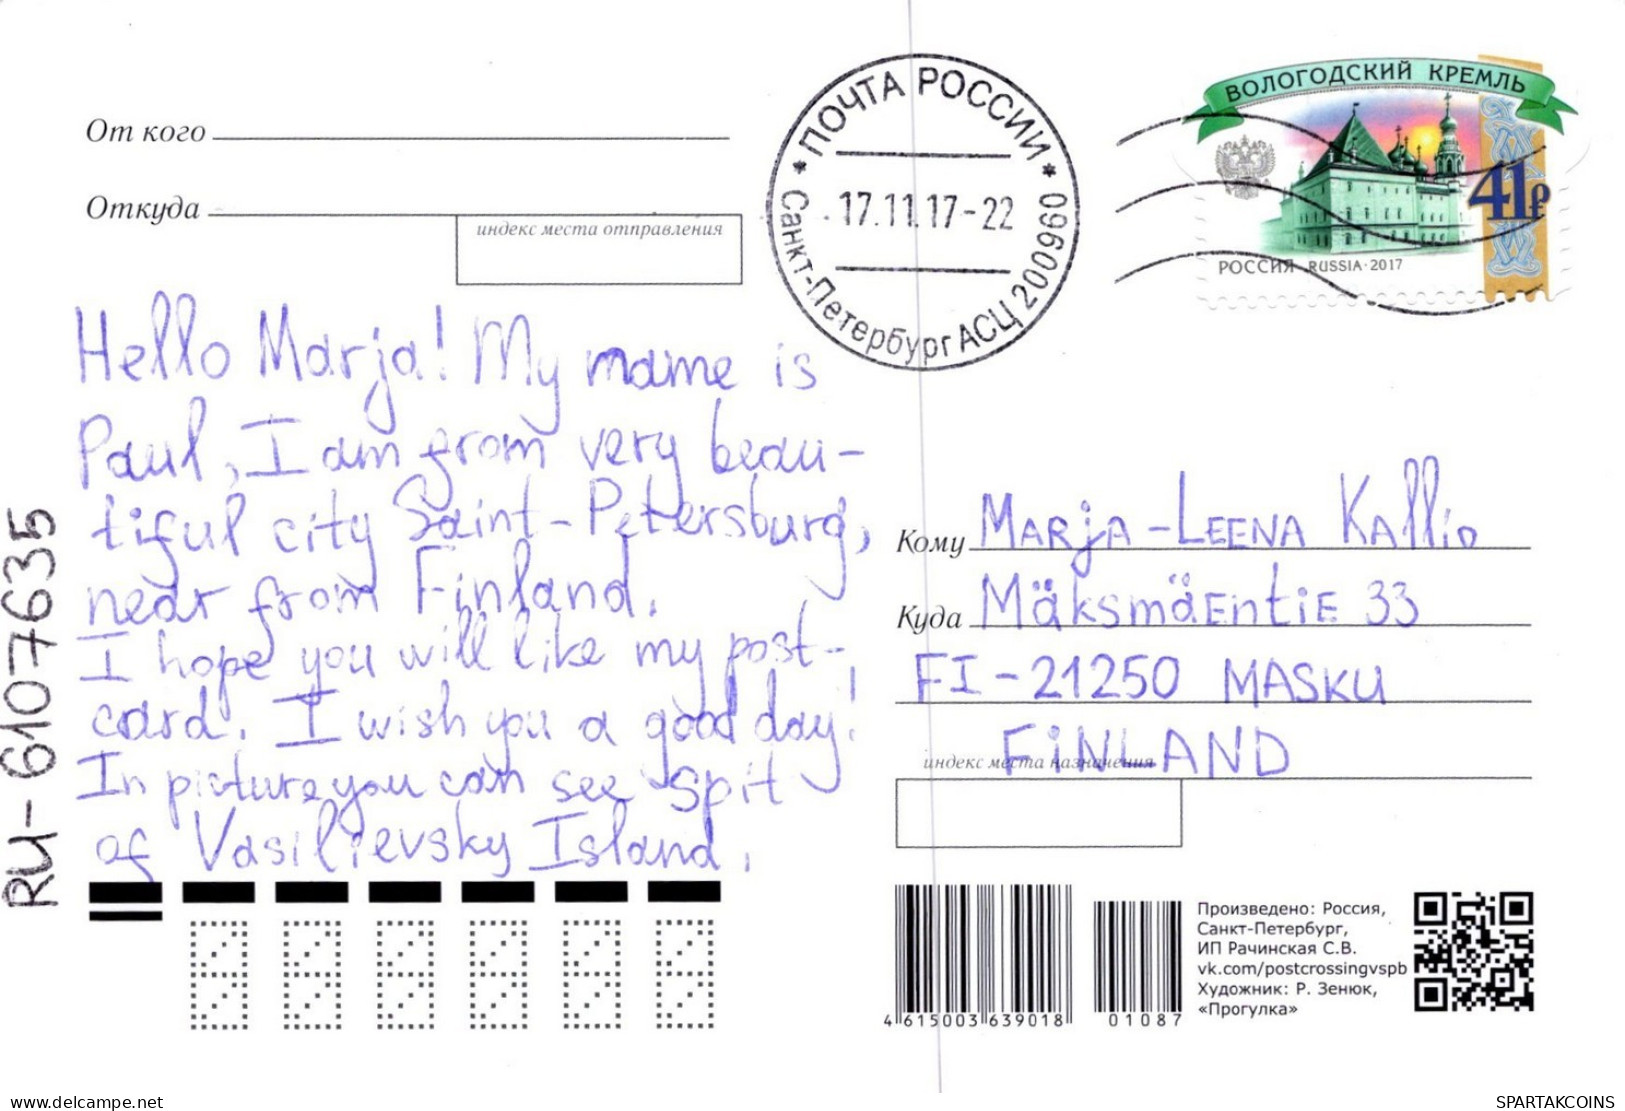 От кого
Откуда
индекс места отправления
ПОЧТА РОССИИ
17.11.17-22
Санкт-Петербург АСЦ 200960
ВОЛОГОДСКИЙ КРЕМЛЬ
41₽
РОССИЯ RUSSIA·2017
Hello Marja! My name is
Paul, I am from very beau-
tiful city Saint-Petersburg,
near from Finland.
I hope you will like my post-
card. I wish you a good day!
In picture you can see Spit
of Vasilievsky Island.
RU-6107635
Кому Marja-Leena Kallio
Куда Mäksmäentie 33
FI-21250 MASKU
FiNLAND
индекс места назначения
4 615003 639018
01087
Произведено: Россия,
Санкт-Петербург,
ИП Рачинская С.В.
vk.com/postcrossingvspb
Художник: Р. Зенюк,
«Прогулка»
www.delcampe.net
SPARTAKCOINS